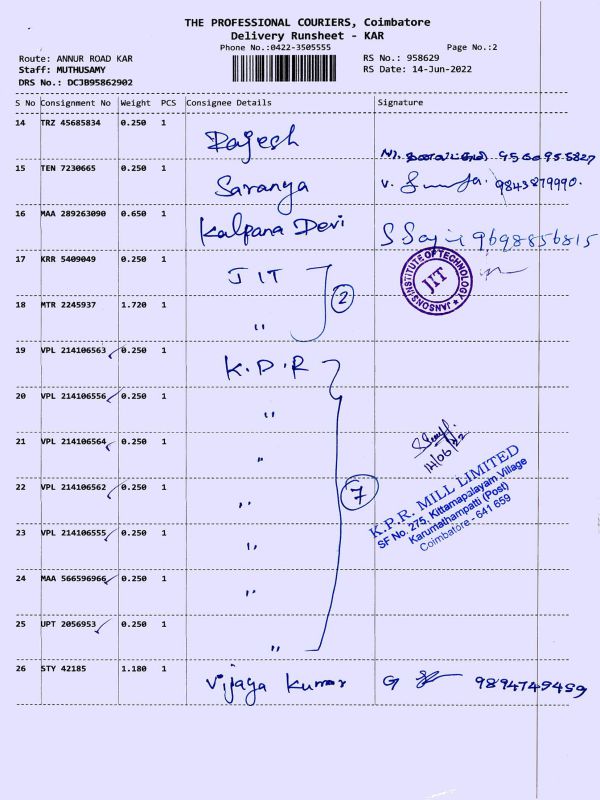 THE PROFESSIONAL COURIERS, Coimbatore
Delivery Runsheet - KAR
Phone No.:0422-3505555
Page No.:2
Route: ANNUR ROAD KAR
RS No.: 958629
Staff: MUTHUSAMY
RS Date: 14-Jun-2022
DRS No.: DCJB95862902
S No Consignment No Weight PCS Consignee Details Signature
14 TRZ 45685834 0.250 1 Rajesh
15 TEN 7230665 0.250 1 Saranya V. 9843879990.
16 MAA 289263090 0.650 1 Kalpana Devi 9698856815
17 KRR 5409049 0.250 1 JIT
JANSONS INSTITUTE OF TECHNOLOGY
JIT
18 MTR 2245937 1.720 1 " 2
19 VPL 214106563 0.250 1 K.P.R
20 VPL 214106556 0.250 1 "
21 VPL 214106564 0.250 1 "
14/06/22
22 VPL 214106562 0.250 1 " 7
K.P.R. MILL LIMITED
SF No. 275, Kittampalayam Village
Karumathampatti (Post)
Coimbatore - 641 659
23 VPL 214106555 0.250 1 "
24 MAA 566596966 0.250 1 "
25 UPT 2056953 0.250 1 "
26 STY 42185 1.180 1 Vijaya Kumar G 9894749459